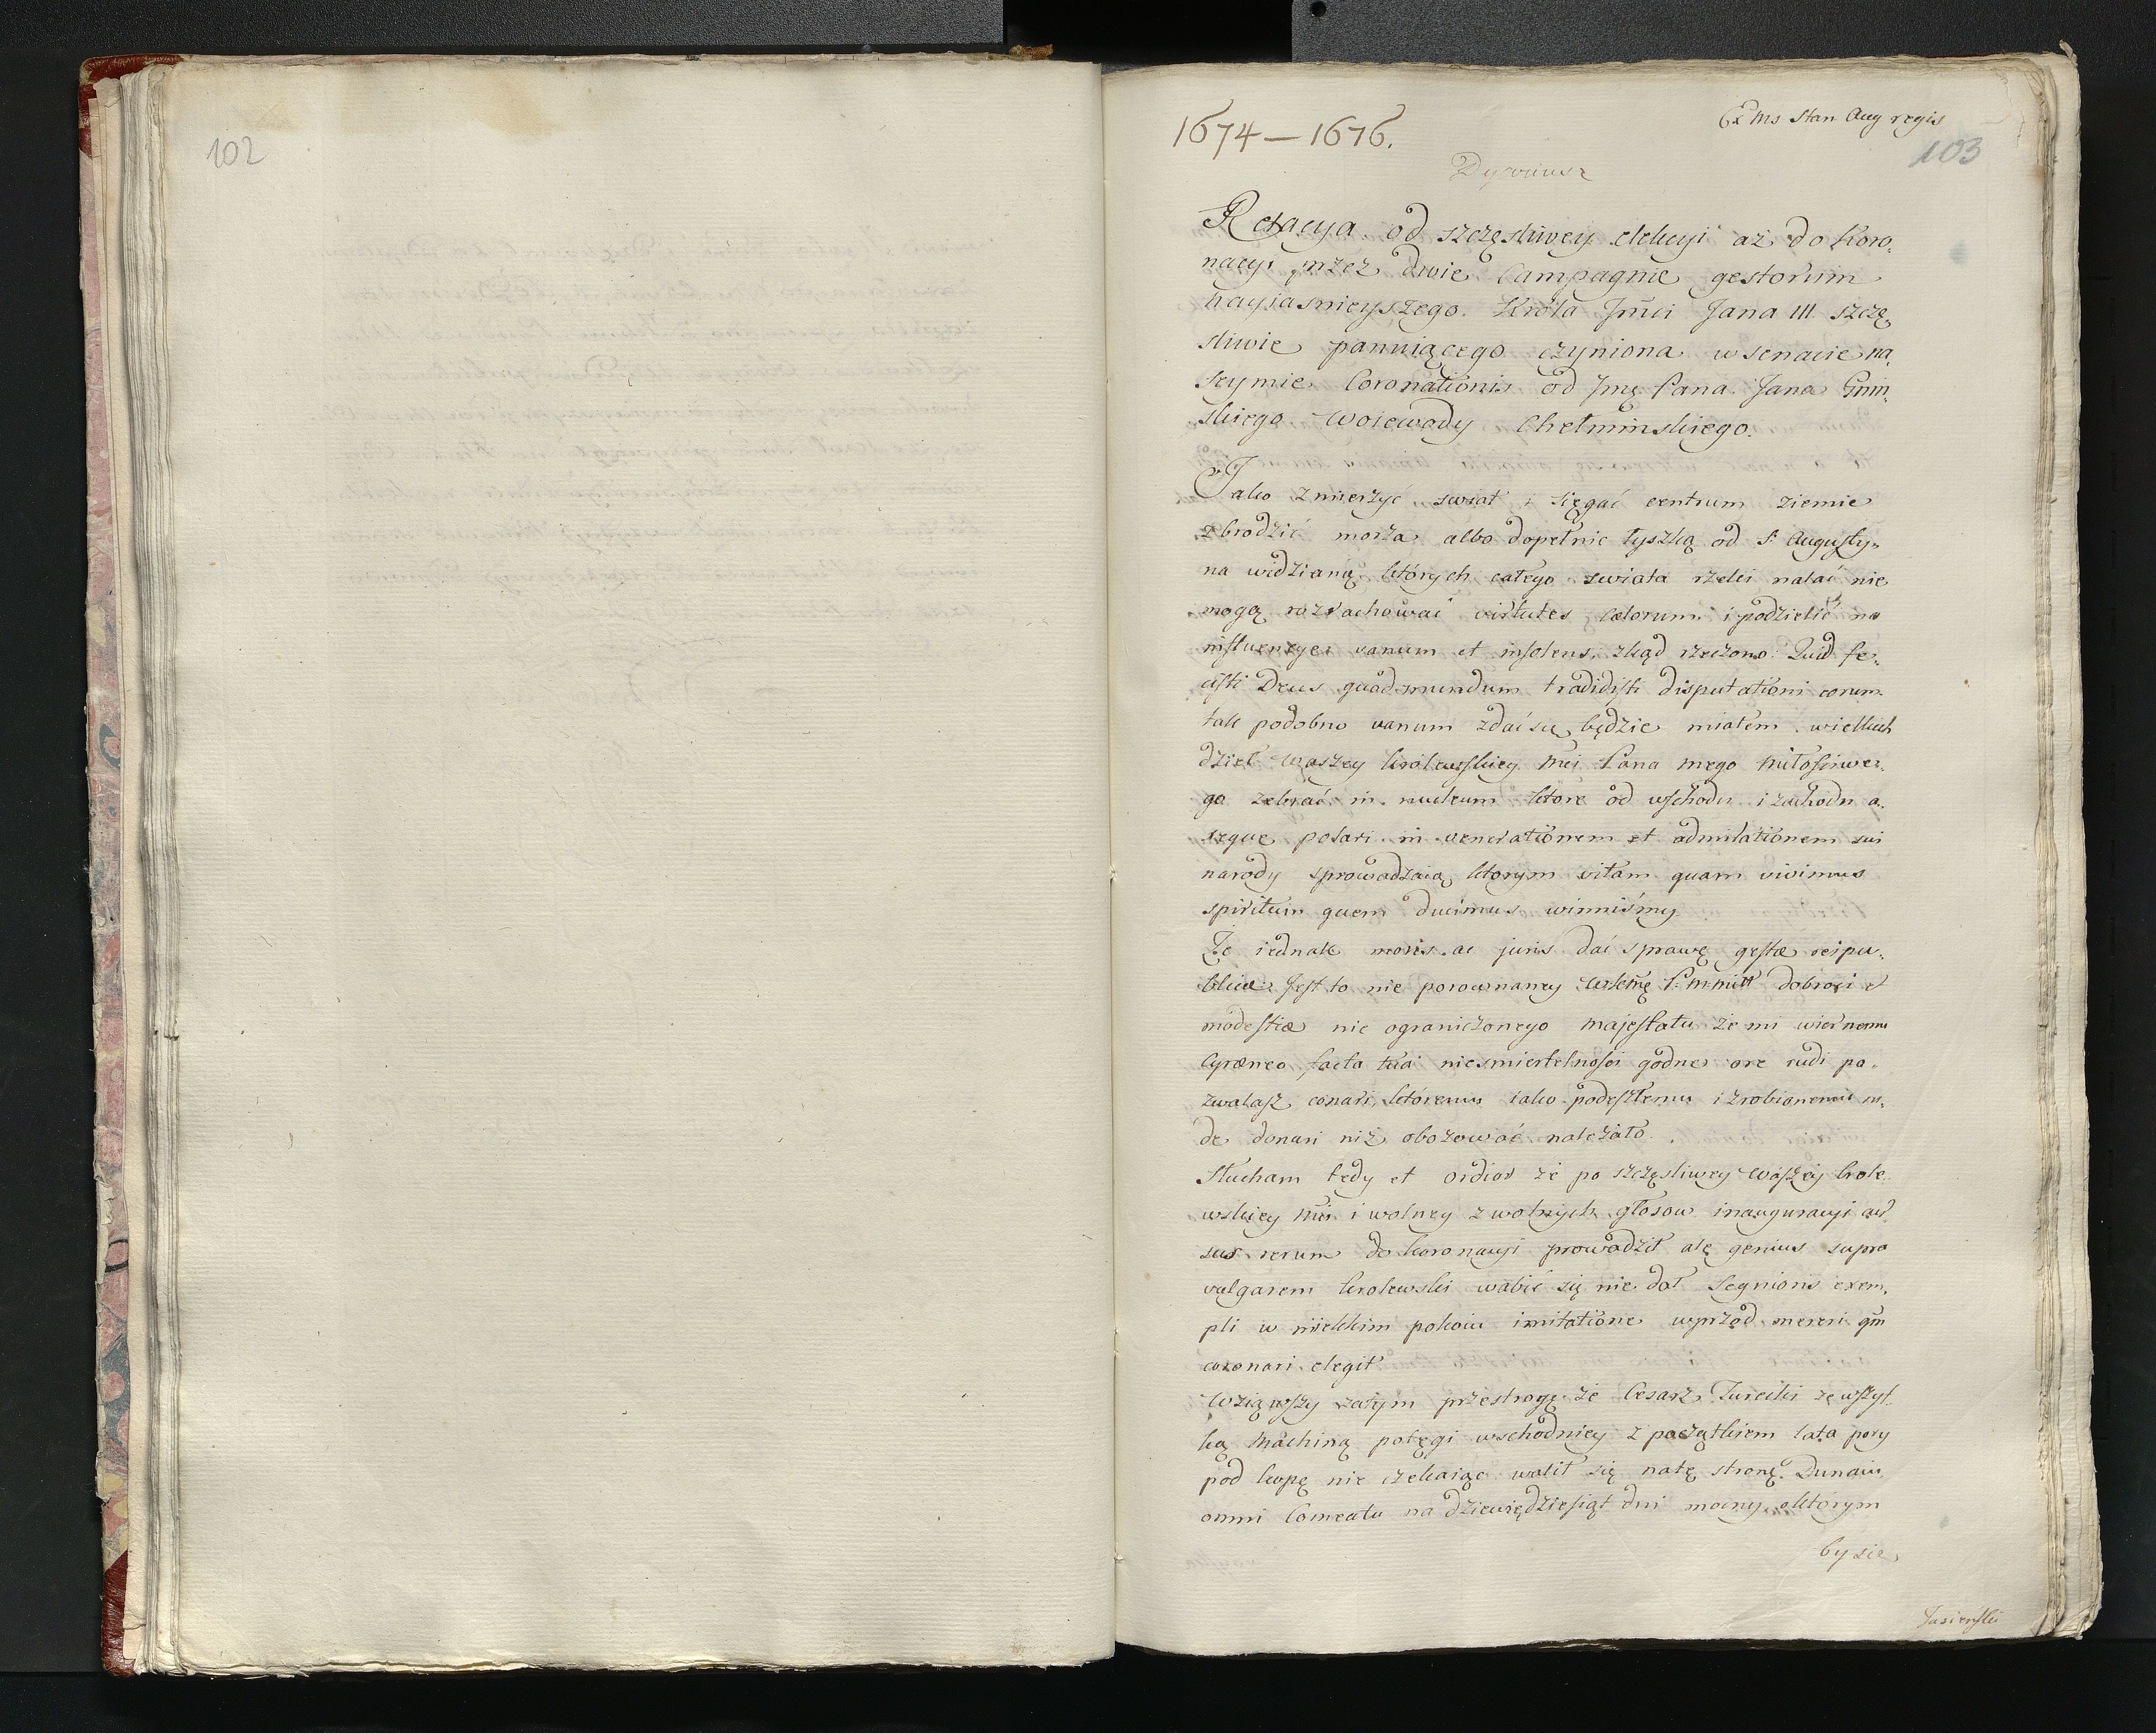 102
1674 — 1676.
Ex Ms Stan Aug regis
103
Dyariusz
Relacya od szczęsliwey elekcyi aż do Koro,
nacyi przez dwie Campagnie gestorum
nayiasnieyszego Krola Jm̃ci Jana III szczę,
sliwie panuiącego czyniona w senacie na
seymie Coronationis od Jmę Pana Jana Gnin,
skiego Woiewody Chełminskiego.
Jako zmierzyć swiat i sięgać centrum ziemie
zbrodzić morza albo dopełnic łyszką od S. Augusty,,
na widzianą których całego swiata rzeki nalać nie
mogą rozrachować virtutes cælorum i podzielić na
influencye vanum et insolens, zkąd rzeczono Quid fe,,
cisti Deus quod mundum tradidisti disputationi eorum
tak podobno vanum zdai się będzie miałem wielkich
dzieł Waszey krolewskiey Mci Pana mego Miłosciwe,
go zebrać in nucleum ktore od wschodu i zachodu a,
xeque polari in venerationem et admirationem sui
narody sprowadzaią ktorym vitam quam vivimus
spiritum quem ducimus winniśmy
Że iednak moris ac juris dai sprawę gestæ reipu,
blicæ Jest to nie porownaney P. m. dobroci et
modestiæ nie ograniczonego majestatu że mi wiernemu
Cyræneo facta tua niesmiertelnosci godne ore rudi po,
zwalasz conari, któremu iako podeszłemu i zrobionemu ru,
de donari niż obozować należało.
Słucham tedy et ordior że po szczęsliwey Waszey krole
wskiey Mci i wolney z wolnych głosow inauguracyi cur
sus rerum do koronacyi prowadził ale genius supra
vulgarem krolewski wabić się nie dał Segnioris exem,
pli w miekkim pokoiu imitatione wprzod mereri qm̃
coronari elegit
Wziąwszy zatym przestrogę że Cesarz Turecki ze wszyt,
ką machiną potęgi wschodniey z początkiem lata pory
pod kopę nie czekaiąc walił się na tę stronę Dunaiu
omni Comeatu na dziewiędziesiąt dni mocny o którym
by sie
Jasieński